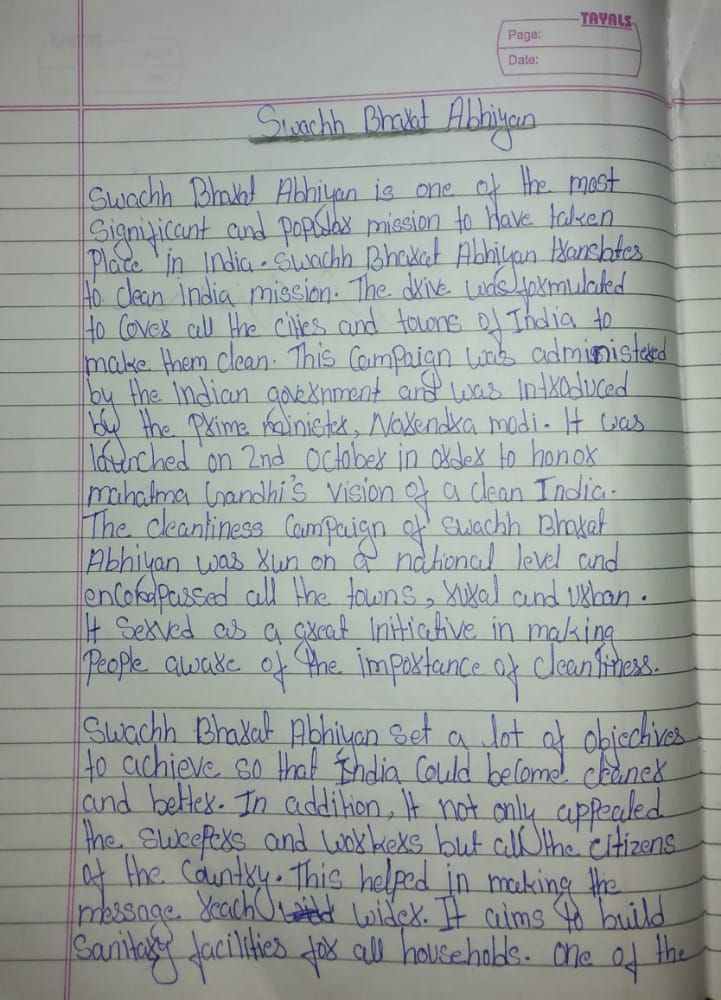 TAYALS
Page:
Date:
Swachh Bharat Abhiyan
Swachh Bharat Abhiyan is one of the most
significant and popular mission to have taken
Place in India. Swachh Bharat Abhiyan translates
to clean India mission. The drive was formulated
to cover all the cities and towns of India to
make them clean. This Campaign was administered
by the Indian government and was introduced
by the Prime Minister, Narendra modi. It was
launched on 2nd October in order to honor
mahatma Gandhi's vision of a clean India.
The cleanliness Campaign of Swachh Bharat
Abhiyan was run on a national level and
encompassed all the towns, rural and urban.
It served as a great initiative in making
People aware of the importance of cleanliness.
Swachh Bharat Abhiyan set a lot of objectives
to achieve so that India could become cleaner
and better. In addition, it not only appealed
the sweepers and workers but all the citizens
of the Country. This helped in making the
message reach wider. It aims to build
sanitary facilities for all households. One of the